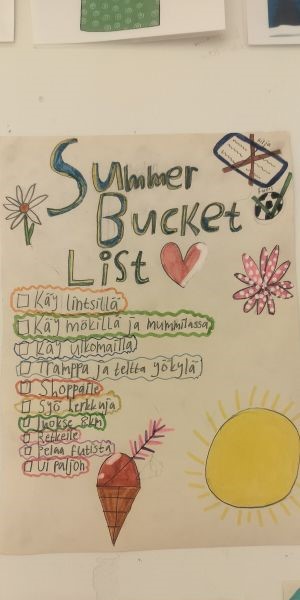 Summer
Bucket
List
Käy lintsillä
Käy mökillä ja mummilassa
Käy ulkomailla
Tramppa ja teltta yökylä
Shoppaile
Syö herkkuja
Juokse 8km
Retkeile
Pelaa futista
Ui paljon